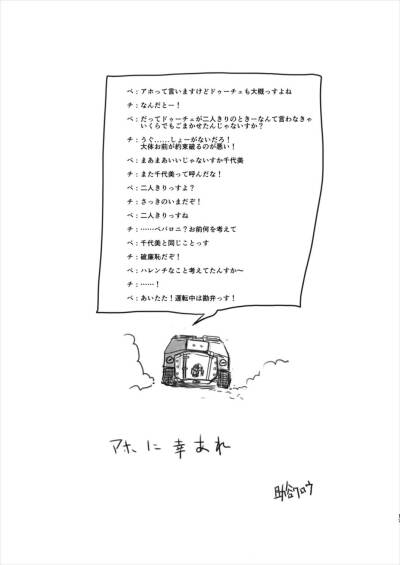 ペ：アホって言いますけどドゥーチェも大概っすよね
チ：なんだとー！
ペ：だってドゥーチェが二人きりのときーなんて言わなきゃ
いくらでもごまかせたんじゃないすか？
チ：うぐ……しょーがないだろ！
大体お前が約束破るのが悪い！
ペ：まあまあいいじゃないすか千代美
チ：また千代美って呼んだな！
ペ：二人きりっすよ？
チ：さっきのいまだぞ！
ペ：二人きりっすね
チ：……ペパロニ？お前何を考えて
ペ：千代美と同じことっす
チ：破廉恥だぞ！
ペ：ハレンチなこと考えてたんすか〜
チ：……！
ペ：あいたた！運転中は勘弁っす！
アホに幸あれ
助谷クロウ